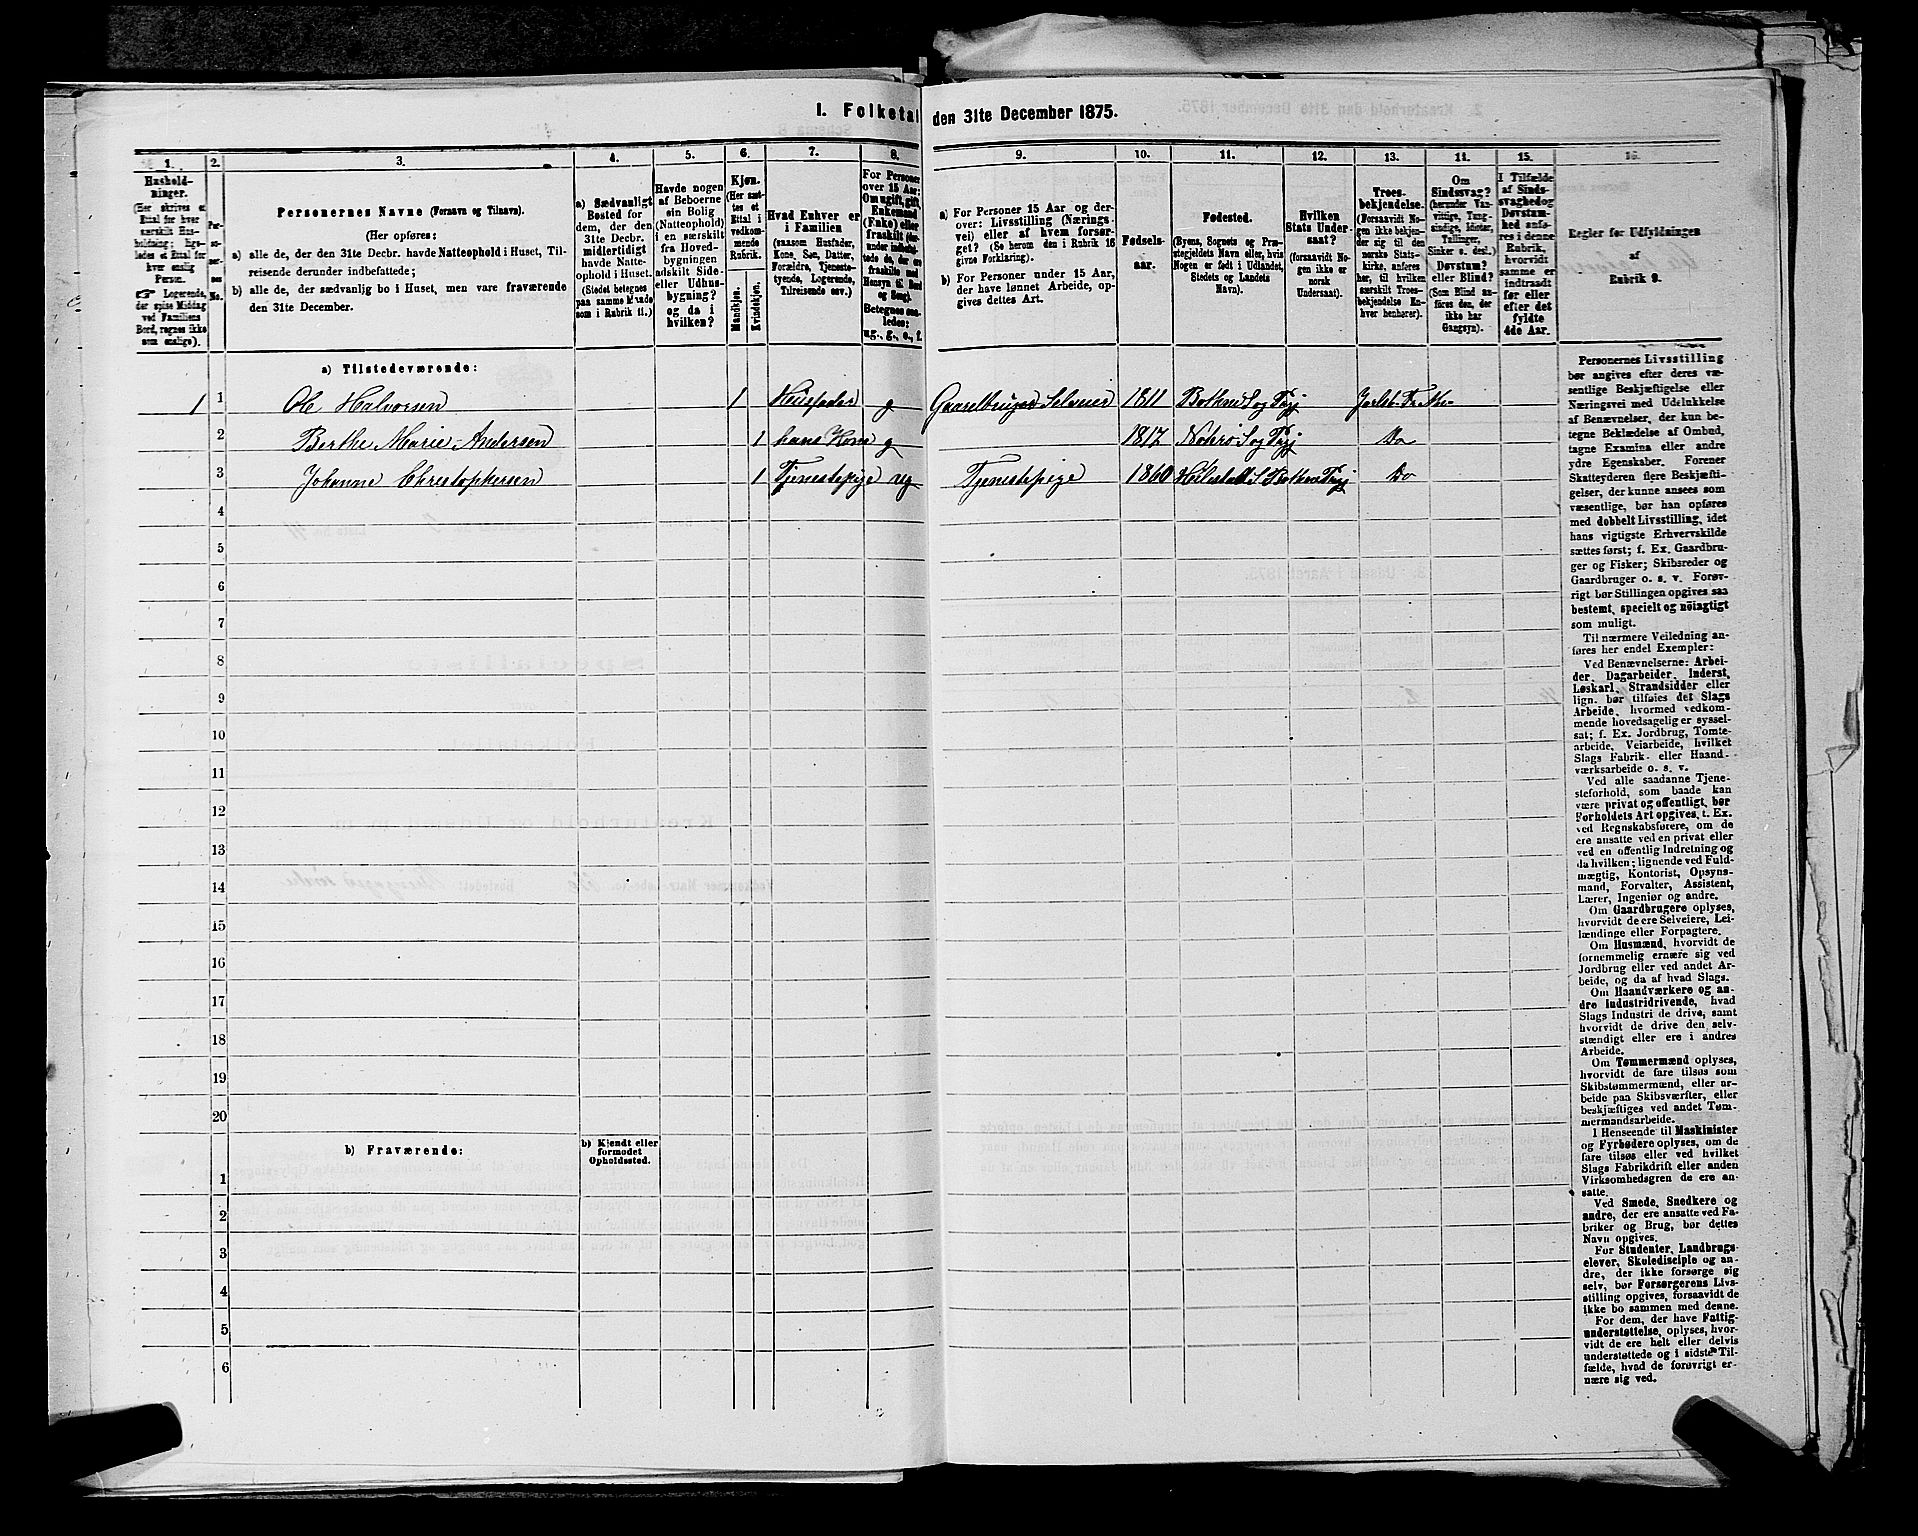 I. Folketal den 31te December 1875.
1. 2. 3. 4. 5. 6. 7. 8. 9. 10. 11. 12. 13. 14. 15. 16.
Hushold-
ninger.
(Her skrives et
Ettal for hver
særskilt Hus-
holdning; lige-
ledes et Ettal
for hver
enslig
Person.
☞ Logerende,
der spise Middag
ved Familiens
Bord, regnes ikke
som enslige).
Per-
so-
ner-
nes
No.
Personernes Navne (Fornavn og Tilnavn).
(Her opføres:
a) alle de, der den 31te Decbr. havde Natteophold i Huset, Til-
reisende derunder indbefattede;
b) alle de, der sædvanlig bo i Huset, men vare fraværende
den 31te December.
a) Sædvanligt
Bosted for
dem, der den
31te Decbr.
midlertidigt
havde Natte-
ophold i Huset.
(Stedet betegnes
paa samme Maade
som i Rubrik 11.)
Havde nogen
af Beboerne
sin Bolig
(Natteophold)
i en særskilt
fra Hoved-
bygningen
adskilt Side-
eller Udhus-
bygning?
og da i
hvilken?
Kjøn.
(Her sæt-
tes et
Ettal i
vedkom-
mende
Rubrik.
Mandkjøn.
Kvindekjøn.
Hvad Enhver er
i Familien
(saasom Husfader,
Kone, Søn, Datter,
Forældre, Tjeneste-
tyende, Logerende,
Tilreisende osv.)
For Personer
over 15 Aar:
Om ugift, gift,
Enkemand
(Enke) eller
fraskilt
Betegnes saa-
ledes:
ug., g., e., f.
a) For Personer 15 Aar og der-
over: Livsstilling (Nærings-
vei) eller af hvem forsør-
get? (Se herom den i Rubrik 16
givne Forklaring).
b) For Personer under 15 Aar,
der have lønnet Arbeide, op-
gives dettes Art.
Fødsels-
aar.
Fødested.
(Byens, Sognets og Præ-
stegjeldets Navn eller, hvis
Nogen er født i Udlandet,
Stedets og Landets
Navn).
Hvilken
Stats Under-
saat?
(forsaavidt No-
gen ikke er
norsk
Undersaat).
Troes-
bekjendelse.
(Forsaavidt No-
gen ikke bekjen-
der sig til den
norske Stats-
kirke, anføres
her, til hvilken
særskilt Troes-
bekjendelse En-
hver henhører).
Om
Sindssvag?
(herunder Van-
vittige, Tung-
sindige, Idioter,
Tullinger,
Sinker o. desl.)
Døvstum?
eller Blind?
(Som Blind an-
føres den, der
ikke har
Gangsyn).
I Tilfælde
af Sinds-
svaghed og
Døvstum-
hed anfø-
res i denne
Rubrik,
hvorvidt
samme er
indtraadt
før eller
efter det
fyldte
4de Aar.
Regler for Udfyldningen
af
Rubrik 9.
a) Tilstedeværende:
1 1 Ole Halvorsen 1 Husfader g Gaardbruger Selveier 1811 Botne S og Prgj
2 Berthe Marie Andersen 1 hans Kone g 1817 Do
3 Johanne Christophersen 1 Tjenestepige ug Tjenestepige 1860 Do
4
5
6
7
8
9
10
11
12
13
14
15
16
17
18
19
20
b) Fraværende:
b) Kjendt eller
formodet
Opholdssted.
1
2
3
4
5
6
Personernes Livsstilling
bør angives efter deres væ-
sentlige Beskjæftigelse eller
Næringsvei med Udelukkelse
af Benævnelser, der kun be-
tegne Beklædelse af Ombud,
tagne Examina eller andre
ydre Egenskaber. Forener
Skatteyderen flere Beskjæfti-
gelser, der kunne ansees som
væsentlige, bør han opføres
med dobbelt Livsstilling, idet
hans vigtigste Erhvervskilde
sættes først; f. Ex. Gaardbru-
ger og Fisker; Skibsreder og
Gaardbruger o. s. v. Forøv-
rigt bør Stillingen opgives saa
bestemt, specielt og nøiagtigt
som muligt.
Til nærmere Veiledning an-
føres her endel Exempler:
Ved Benævnelserne: Arbei-
der, Dagarbeider, Inderst,
Løskarl, Strandsidder eller
lign. bør tilføies det Slags
Arbeide, hvormed vedkom-
mende hovedsagelig er syssel-
sat; f. Ex. Jordbrug, Tomte-
arbeide, Veiarbeide, hvilket
Slags Fabrik- eller Haand-
værksarbeide o. s. v.
Ved alle saadanne Tjene-
steforhold, som baade kan
være privat og offentligt, bør
Forholdets Art opgives, t. Ex.
ved Regnskabsførere, om de
ere ansatte ved en privat eller
ved en offentlig Indretning og
da hvilken; lignende ved Fuld-
mægtig, Kontorist, Opsyns-
mand, Forvalter, Assistent,
Lærer, Ingeniør og andre.
Om Gaardbrugere oplyses,
hvorvidt de ere Selveiere, Lei-
lændinge eller Forpagtere.
Om Husmænd, hvorvidt de
fornemmelig ernære sig ved
Jordbrug eller ved andet Ar-
beide, og da af hvad Slags.
Om Haandværkere og an-
dre Industridrivende, hvad
Slags Industri de drive, samt
hvorvidt de drive den selv-
stændigt eller ere i andres
Arbeide.
Om Tømmermænd oplyses,
hvorvidt de fare tilsøs som
Skibstømmermænd, eller ar-
beide paa Skibsværfter, eller
beskjæftiges ved andet Tøm-
mermandsarbeide.
I Henseende til Maskinister
og Fyrbødere oplyses, om de
fare tilsøs eller ved hvilket
Slags Fabrikdrift eller anden
Virksomhedsgren de ere an-
satte.
Ved Smede, Snedkere og
andre, der ere ansatte ved Fa-
briker og Brug, bør dettes
Navn opgives.
For Studenter, Landbrugs-
elever, Skoledisciple og an-
dre, der ikke forsørge sig
selv, bør Forsørgerens Livs-
stilling opgives, forsaavidt de
ikke bo sammen med denne.
For dem, der have Fattig-
understøttelse, oplyses, hvor-
vidt de ere helt eller delvis
understøttede og i sidste Til-
fælde, hvad de forøvrigt er-
nære sig ved.